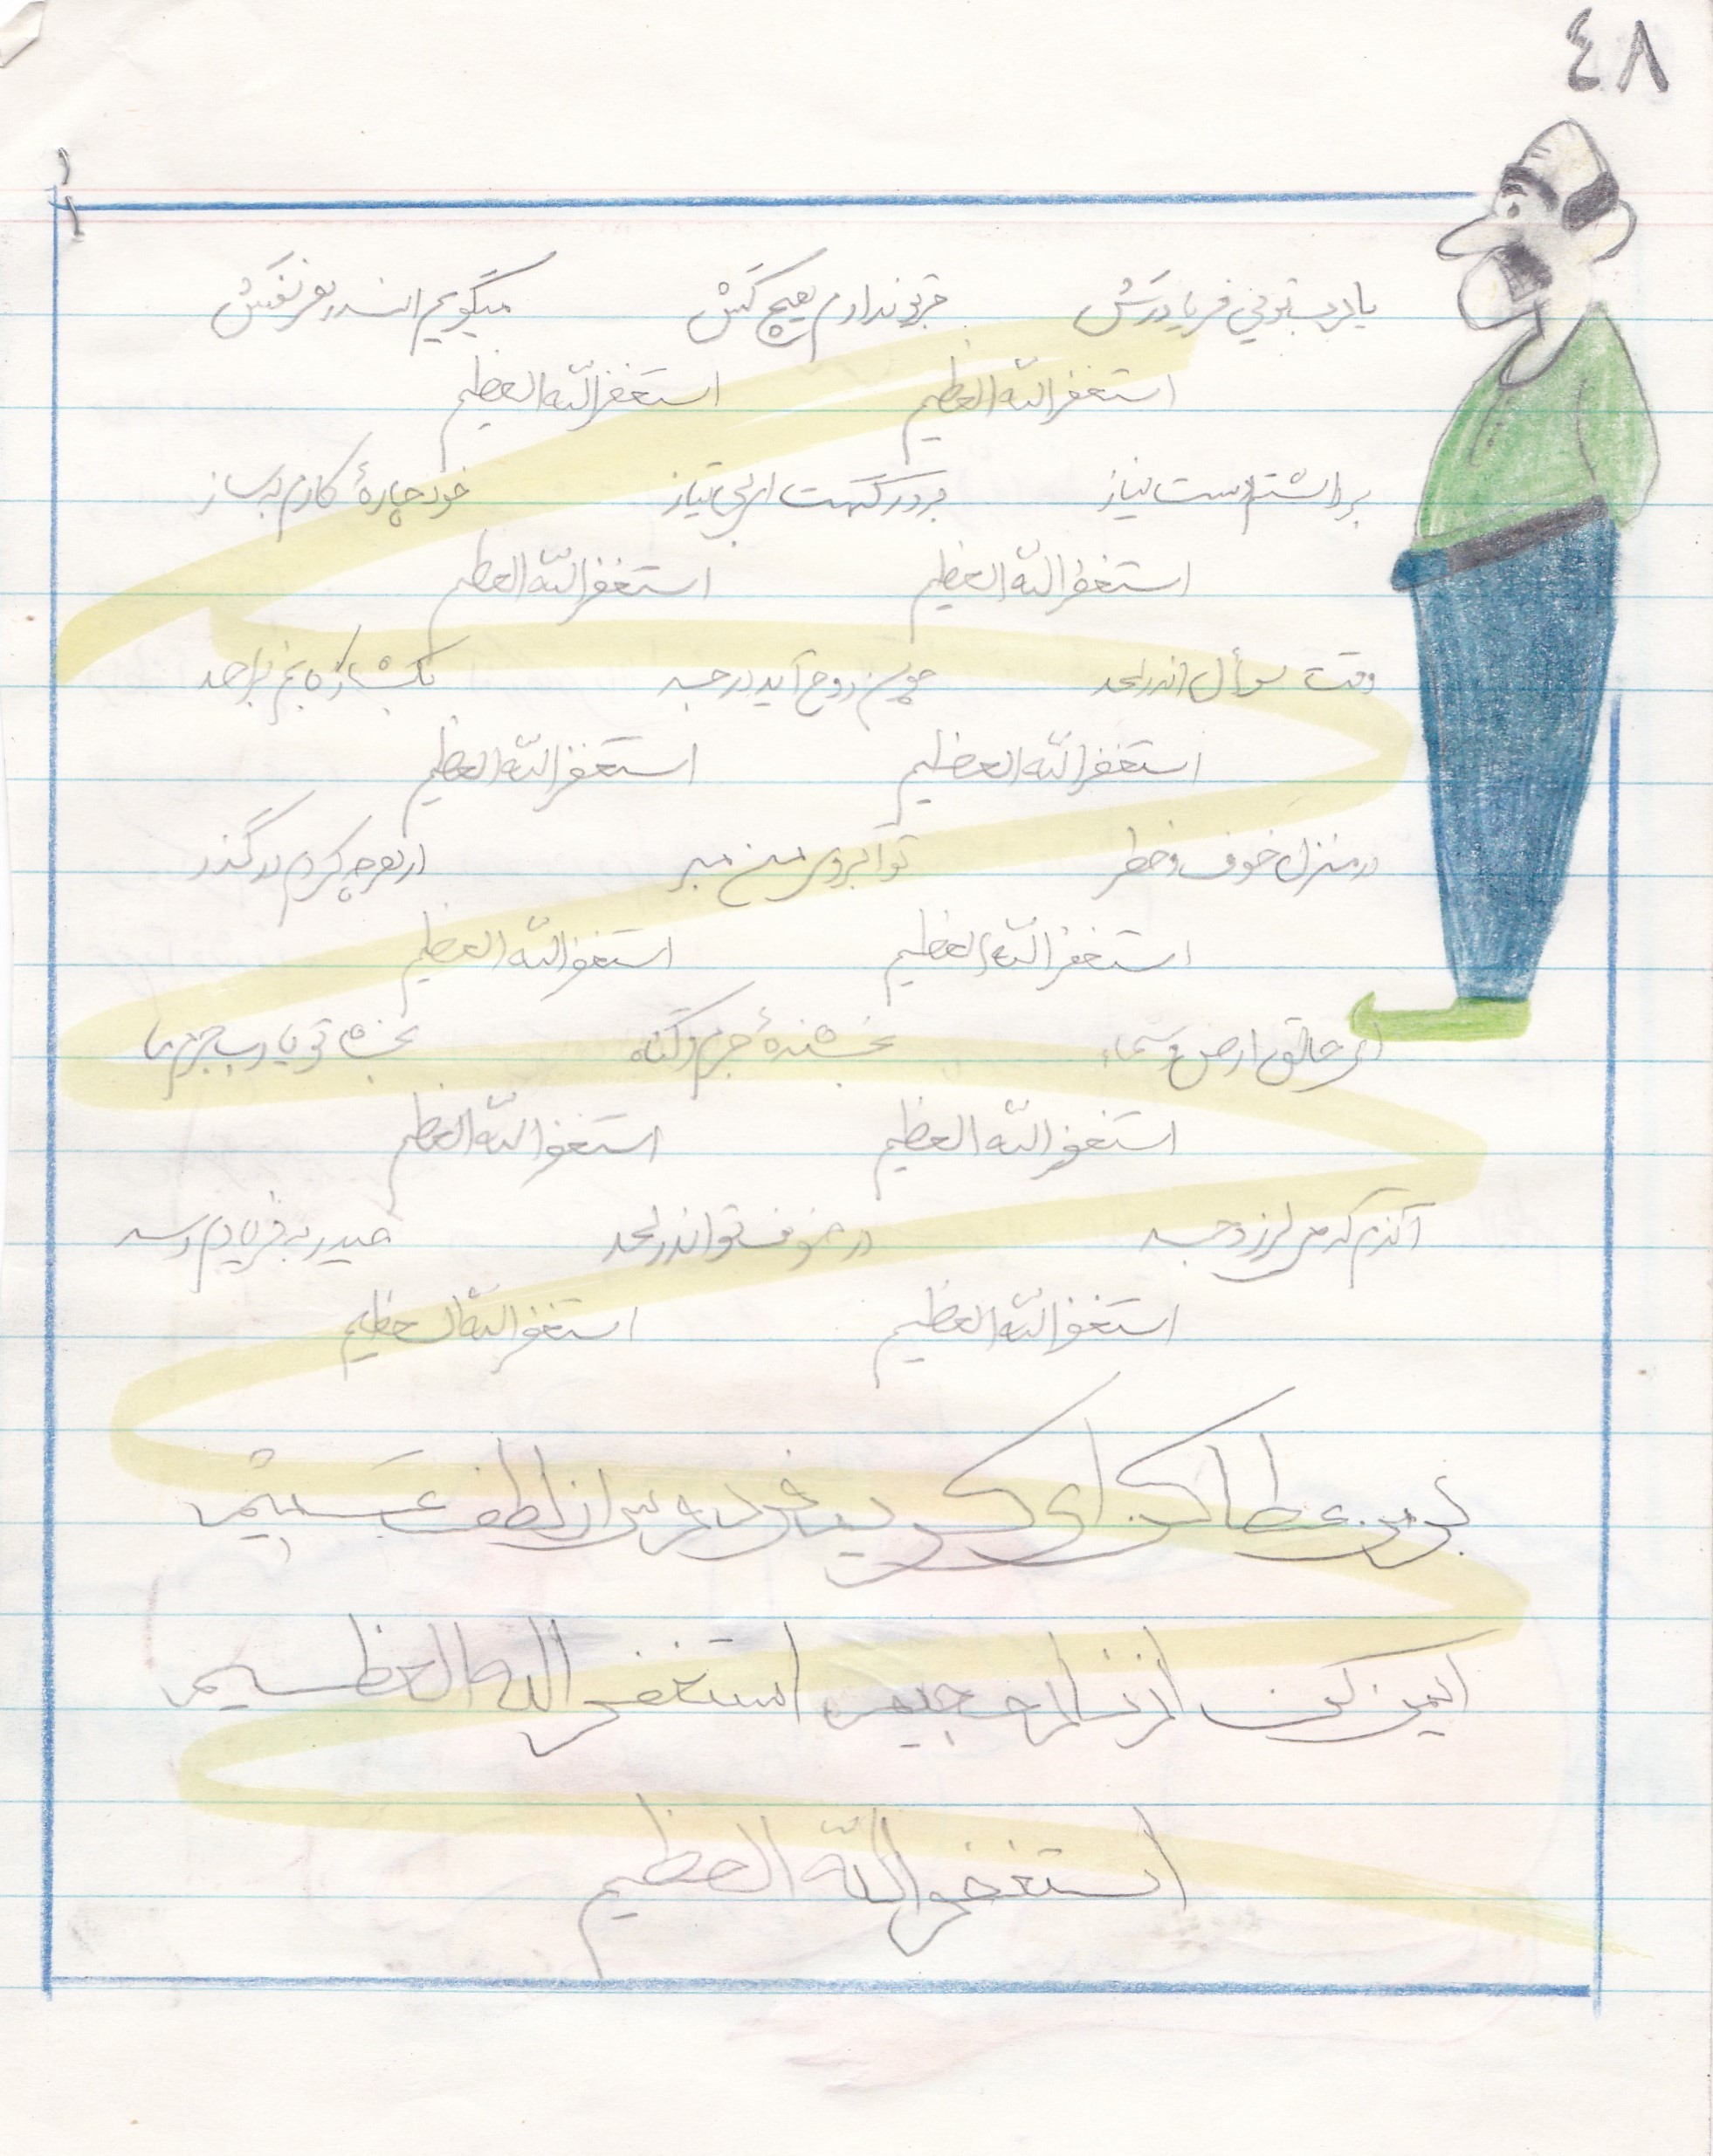 ٤٨
یا رب توئی فریادرس جز تو ندارم هیچ کس میگویم اندر هر نفس
استغفر اللّه العظیم استغفر اللّه العظیم
برداشتم دست نیاز بر درگهت ای بی نیاز خود چارهٔ کارم بساز
استغفر اللّه العظیم استغفر اللّه العظیم
وقت سؤال اندر لحد چون روح آید در جسد بگشا
استغفر اللّه العظیم استغفر اللّه العظیم
در منزل خوف و خطر تو آبروی من مبر از هر چه کردم در گذر
استغفر اللّه العظیم استغفر اللّه العظیم
ای خالق ارض و سماء بخشندهٔ جرم و گناه یا رب جرم ما
استغفر اللّه العظیم استغفر اللّه العظیم
آندم که می لرزد جسد در خوف تو اندر لحد حیدر به فریادم رسد
استغفر اللّه العظیم استغفر اللّه العظیم
بر من عطا کن ای کریم فردوس از لطف عمیم
ایمن کن از نار جحیم استغفر الله العظیم
استغفر اللّه العظیم